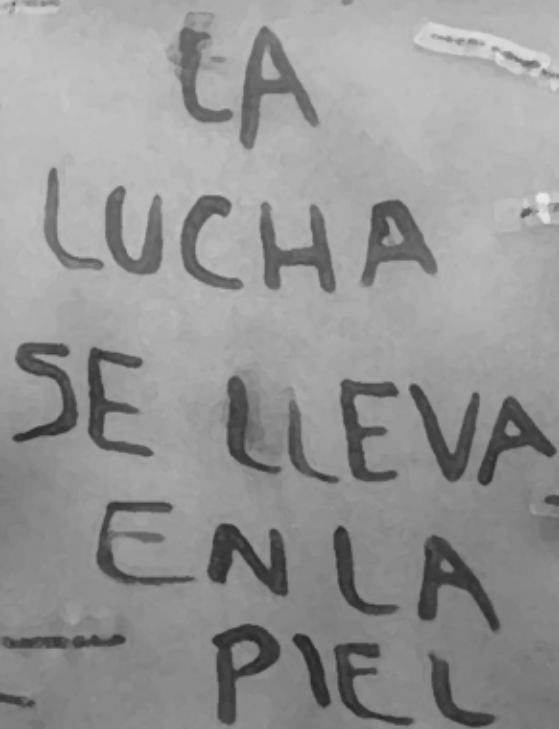 LA
LUCHA
SE LLEVA
EN LA
PIEL